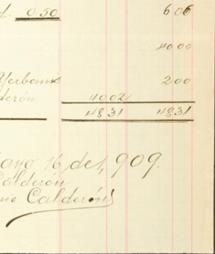 0.50 6.06
40.00
Yerbanis 2.00
derón 40.02
48.31 48.31
ano 16, de 1,909.
Calderon
ne Calderón